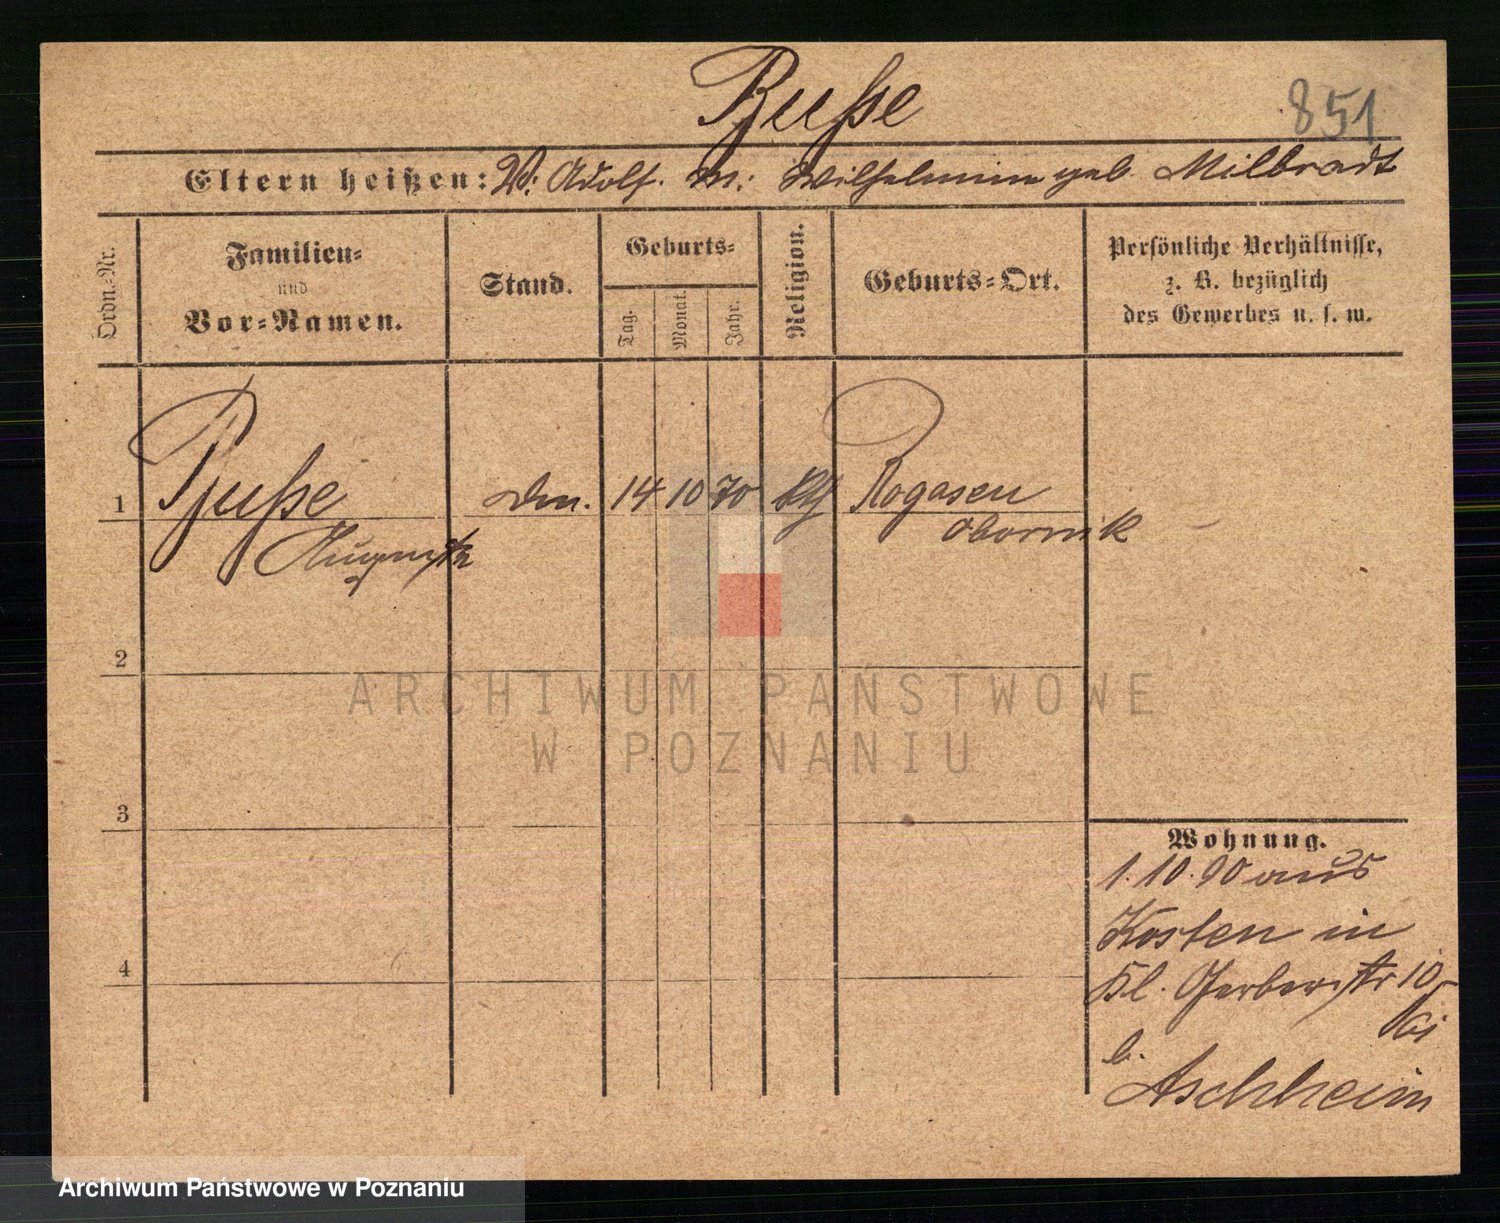 Buße
851
Eltern heißen: V: Adolf. M: Wilhelmine geb. Milbradt
Ordn.-Nr.
Familien-
und
Vor-Namen.
Stand.
Geburts-
Tag.
Monat.
Jahr.
Religion.
Geburts-Ort.
Persönliche Verhältnisse,
z. B. bezüglich
des Gewerbes u. s. w.
1
Buße
14 10 70
Rogasen
Auguste
Obornik
2
3
4
Wohnung.
1.10.90 aus
Kosten in
Kl. Gerberstr 10
b.
Aschheim
ARCHIWUM PAŃSTWOWE
W POZNANIU
Archiwum Państwowe w Poznaniu